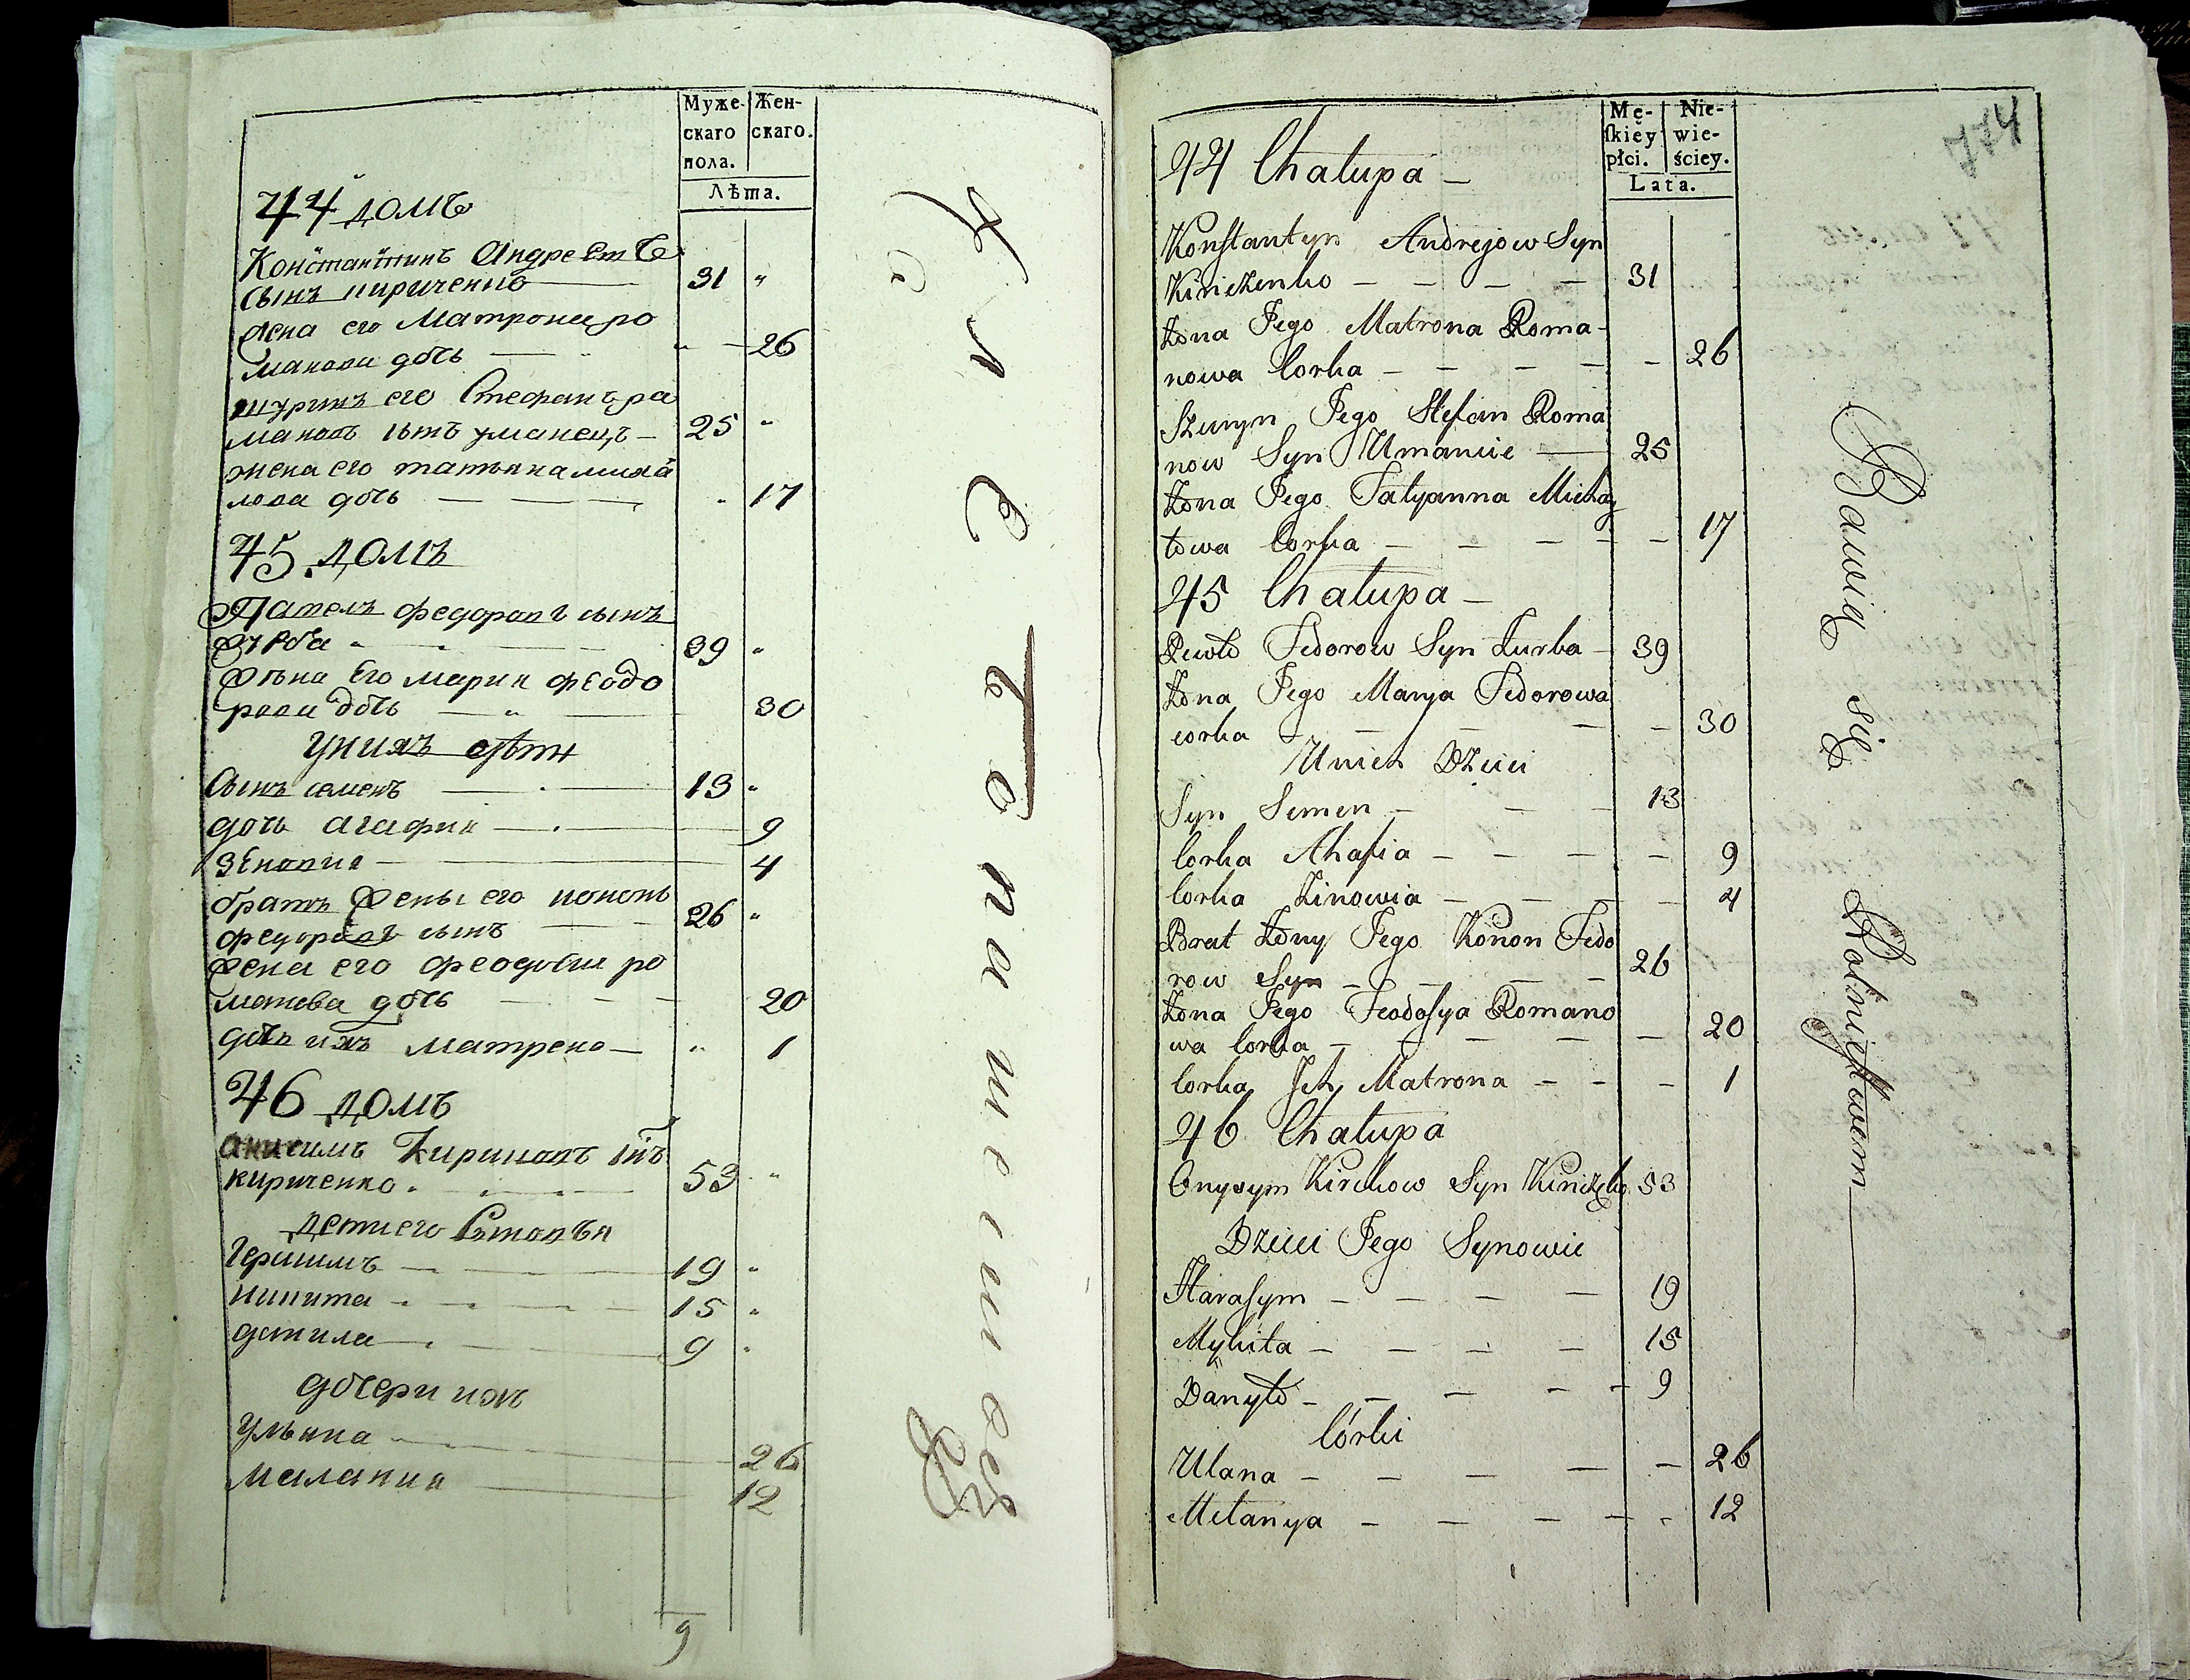 Муже-
скаго
пола.
Жен-
скаго.
Лѣта.
44 домъ
Константинъ Андреевъ
сынъ кириченко 31 "
жена его Матрона ро
манова дочь " 26
шуринъ его Стефанъ ро
мановъ сынъ уманецъ 25 "
жена его татьяна михай
лова дочь " 17
45 домъ
Павелъ федоровъ сынъ
39 "
жена его мария феодо
рова дочь 30
у них дѣти
Сынъ семенъ 13 "
дочь агафия 9
зеновия 4
братъ жены его кононъ
федоровъ сынъ 26 "
жена его феодосия ро
манова дочь 20
дочь ихъ матрена " 1
46 домъ
анисимъ Кириковъ снъ
кириченко 53 "
дети его
герасимъ 19 "
никита 15 "
данила 9 "
дочери ихъ
ульяна 26
малания 12
9
хлебопашествоⷨ
774
Mę-
skiey
płci.
Nie-
wie-
ściey.
Lata.
44 Chałupa —
Konstantyn Andrejow Syn
Kiriczenko — — — — 31
Żona Jego Matrona Roma-
nowa Corka — — — — — 26
Szuryn Jego Stefan Roma
now Syn Umaniec — 25
Żona Jego Tatyanna Michay
łowa Corka — — — — — 17
45 Chałupa —
Pawło Fedorow Syn Żurba — 39
Żona Jego Marya Fedorowa
corka — — — — 30
U nich Dzieci
Syn Semen — — — 13
Corka Ahafia — — — — 9
Corka Zinowia — — — — 4
Brat Żony Jego Konon Fedo
row Syn — — — — 26
Żona Jego Feodosya Romano
wa Corka — — — — — 20
Corka Ich Matrona — — — 1
46 Chałupa
Onysym Kirykow Syn Kiriczko 53
Dzieci Jego Synowie
Harasym — — — — 19
Mykita — — — — 15
Danyło — — — — — 9
Córki
Ulana — — — — — 26
Mełanya — — — — - 12
Bawią się Rolnictwem —